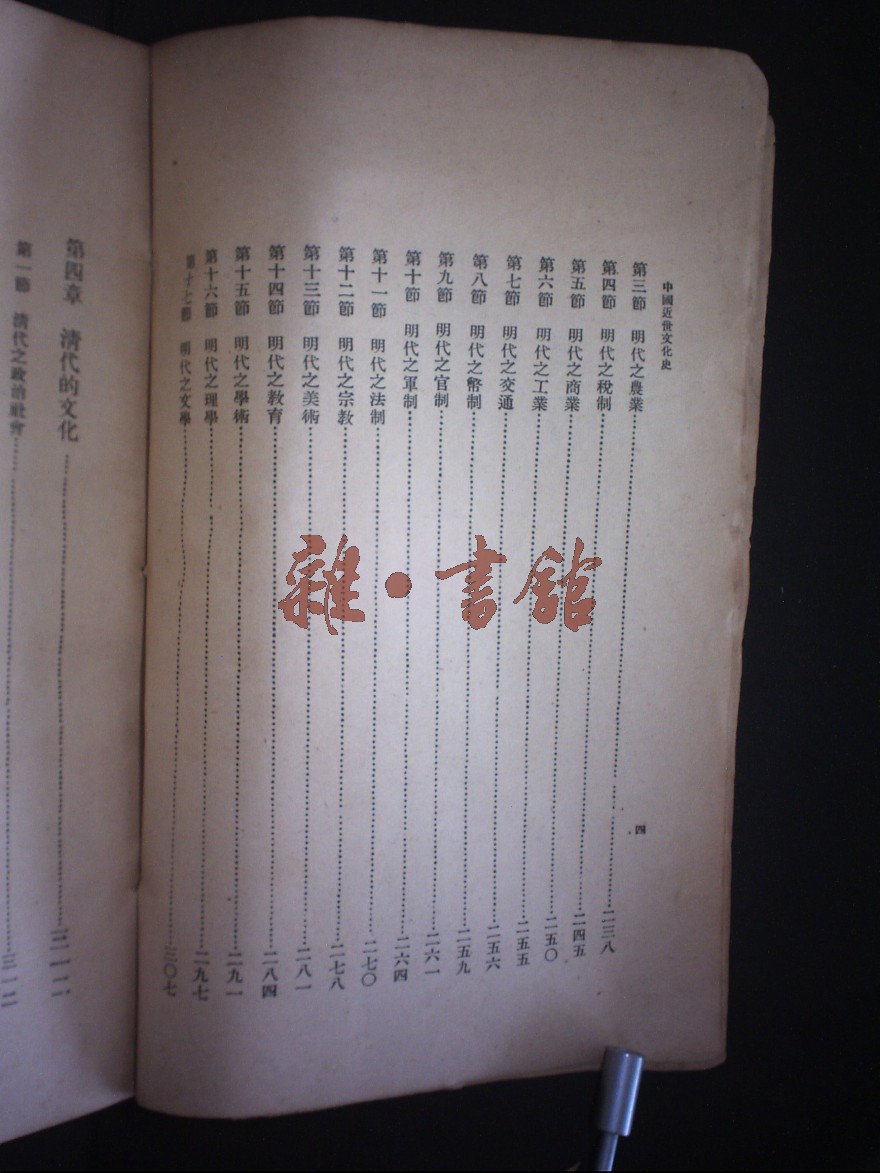 中國近世文化史
四
第三節 明代之農業……二三八
第四節 明代之稅制……二四五
第五節 明代之商業……二五〇
第六節 明代之工業……二五五
第七節 明代之交通……二五六
第八節 明代之幣制……二五九
第九節 明代之官制……二六一
第十節 明代之軍制……二六四
第十一節 明代之法制……二七〇
第十二節 明代之宗教……二七八
第十三節 明代之美術……二八一
第十四節 明代之教育……二八四
第十五節 明代之學術……二九一
第十六節 明代之理學……二九七
第十七節 明代之文學……三〇七
第四章 清代的文化……
第一節 清代之政治社會……三一二
雜·書館